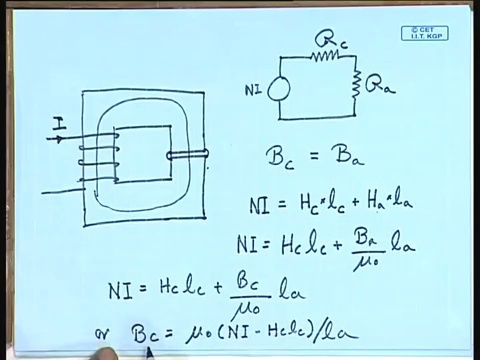 © CET
I.I.T. KGP
R_c
I
NI
R_a
B_c = B_a
NI = H_c * l_c + H_a * l_a
NI = H_c l_c + B_a/μ_0 l_a
NI = H_c l_c + B_c/μ_0 l_a
or B_c = μ_0 (NI - H_c l_c)/l_a